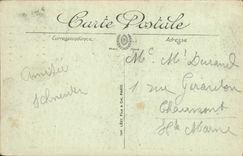 Carte Postale
Correspondance
Adresse
Mr. Mr Durand
1 rue Girardon
Chaumont
Hte Marne
Amitiés
Schneider